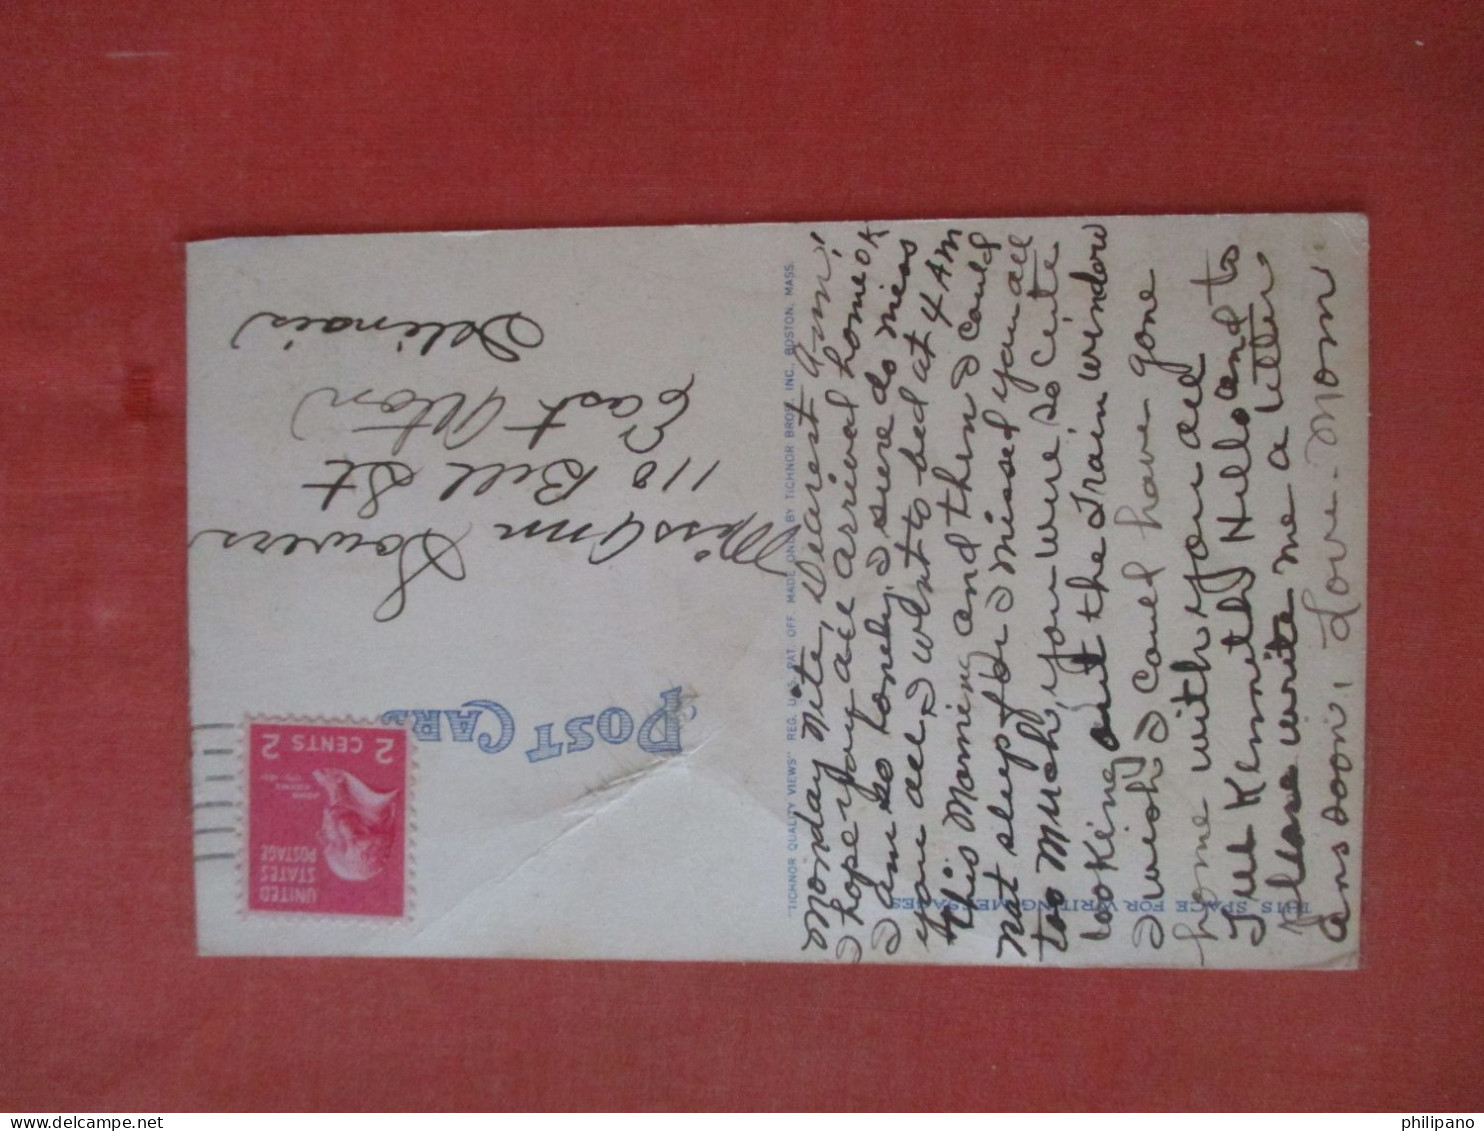 Monday Nite, Dearest Ann,
I hope you all arrived home OK
I am so lonely. I sure do miss
you all, I went to bed at 4 AM
this Morning and then I could
not sleep I missed you all
too mush, you were so cute
looking out the Train window
I wish I could have gone
home with you all
Tell Kenneth Hello and to
please write me a letter
ans soon, Love - Mom
THIS SPACE FOR WRITING MESSAGES
"TICHNOR QUALITY VIEWS" REG. U. S. PAT. OFF. MADE ONLY BY TICHNOR BROS. INC., BOSTON, MASS.
POST CARD
UNITED
STATES
POSTAGE
2 CENTS 2
Miss Ann Sowers
110 Bell St
East Alton
Illinois
philipano